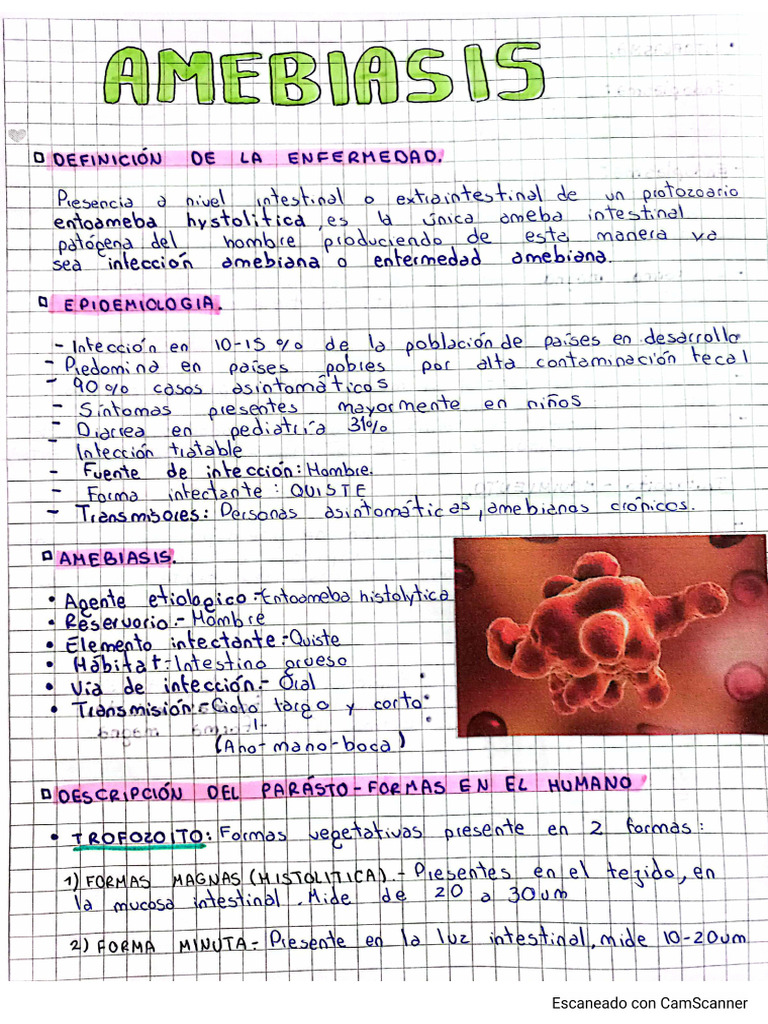 AMEBIASIS
DEFINICIÓN DE LA ENFERMEDAD.
Presencia a nivel intestinal o extraintestinal de un protozoario
entoameba hystolitica, es la única ameba intestinal
patógena del hombre produciendo de esta manera ya
sea infección amebiana o enfermedad amebiana.
EPIDEMIOLOGIA.
- Infección en 10-15 % de la población de países en desarrollo
- Predomina en países pobres por alta contaminación fecal
- 90% casos asintomáticos
- Síntomas presentes mayormente en niños
- Diarrea en pediatría 31%
- Infección tratable
- Fuente de infección: Hombre.
- Forma infectante : QUISTE
- Transmisores: Personas asintomáticas, amebianos crónicos.
AMEBIASIS.
• Agente etiologico.- Entoameba histolytica
• Reservorio.- Hombre
• Elemento infectante.- Quiste
• Hábitat.- Intestino grueso
• Vía de infección.- Oral
• Transmisión.- Ciclo largo y corto
(Ano-mano-boca)
DESCRIPCIÓN DEL PARÁSTO-FORMAS EN EL HUMANO
• TROFOZOITO: Formas vegetativas presente en 2 formas:
1) FORMAS MAGNAS (HISTOLITICA).- Presentes en el tejido, en
la mucosa intestinal. Mide de 20 a 30um
2) FORMA MINUTA= Presente en la luz intestinal, mide 10-20um
Escaneado con CamScanner